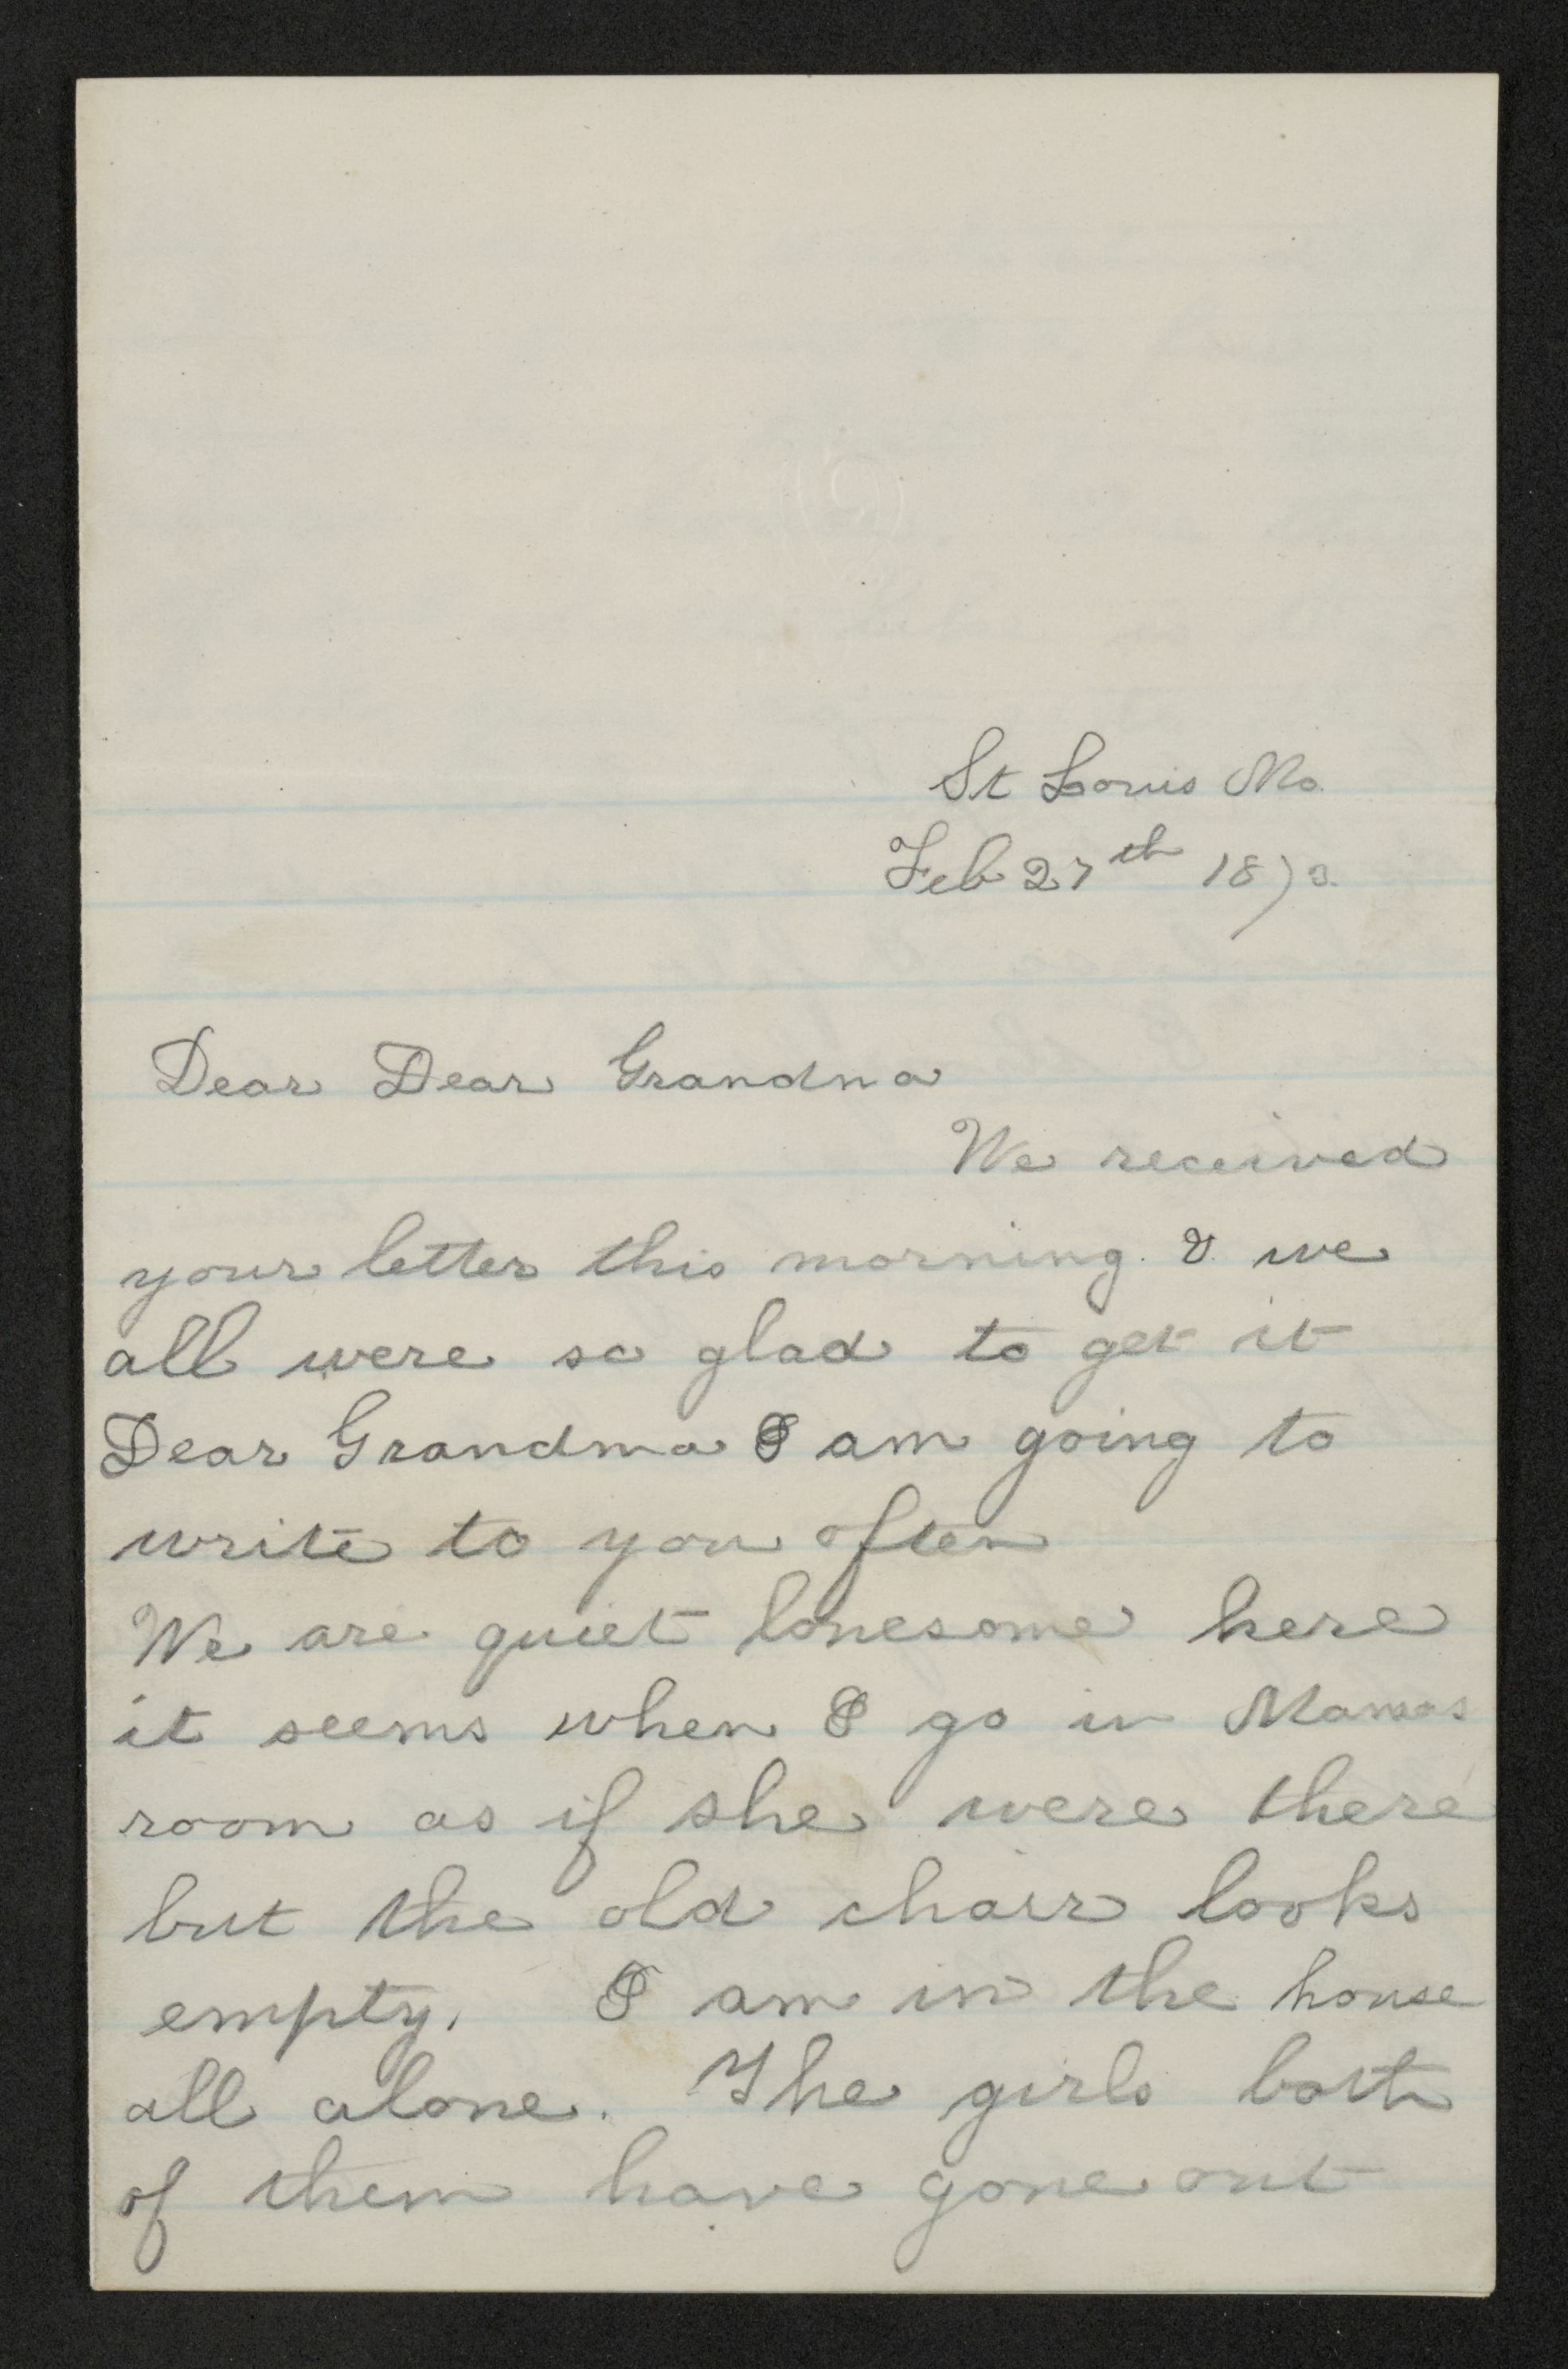 St Louis Mo.
Feb 27th 1873.
Dear Dear Grandma
We received
your letter this morning. & we
all were so glad to get it
Dear Grandma I am going to
write to you often
We are quiet lonesome here
it seems when I go in Mamas
room as if she were there
but the old chair looks
empty. I am in the house
all alone. The girls both
of them have gone out